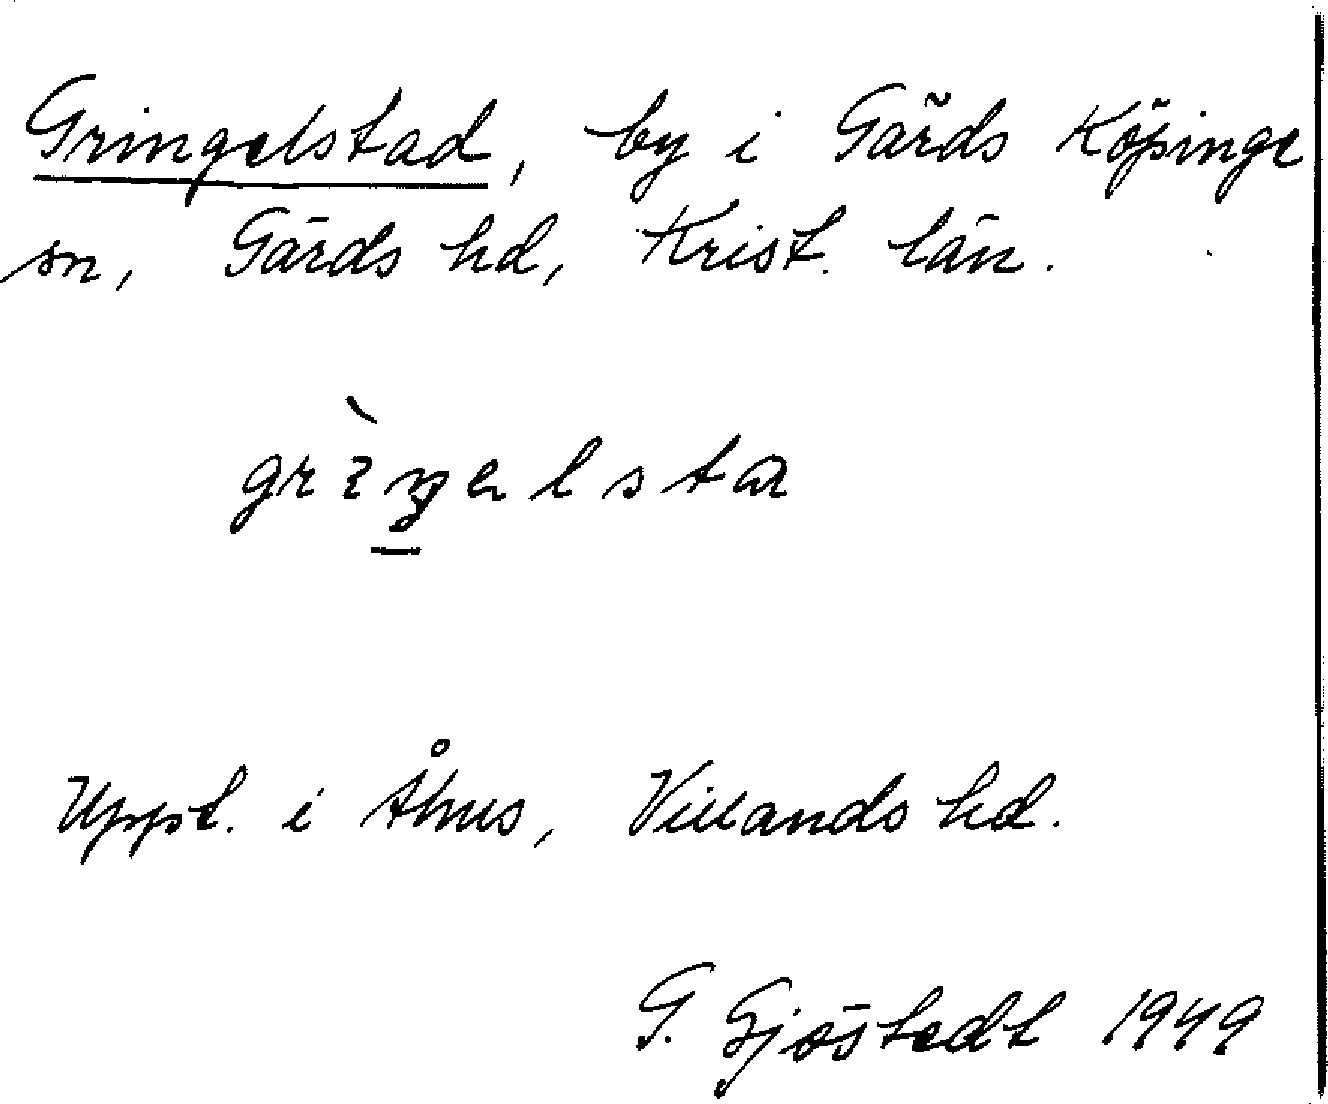 Gringelstad, by i Gärds Köpinge
sn, Gärds hd, Krist. län.
grìŋelsta
Uppt. i Åhus, Villands hd.
G. Sjöstedt 1949